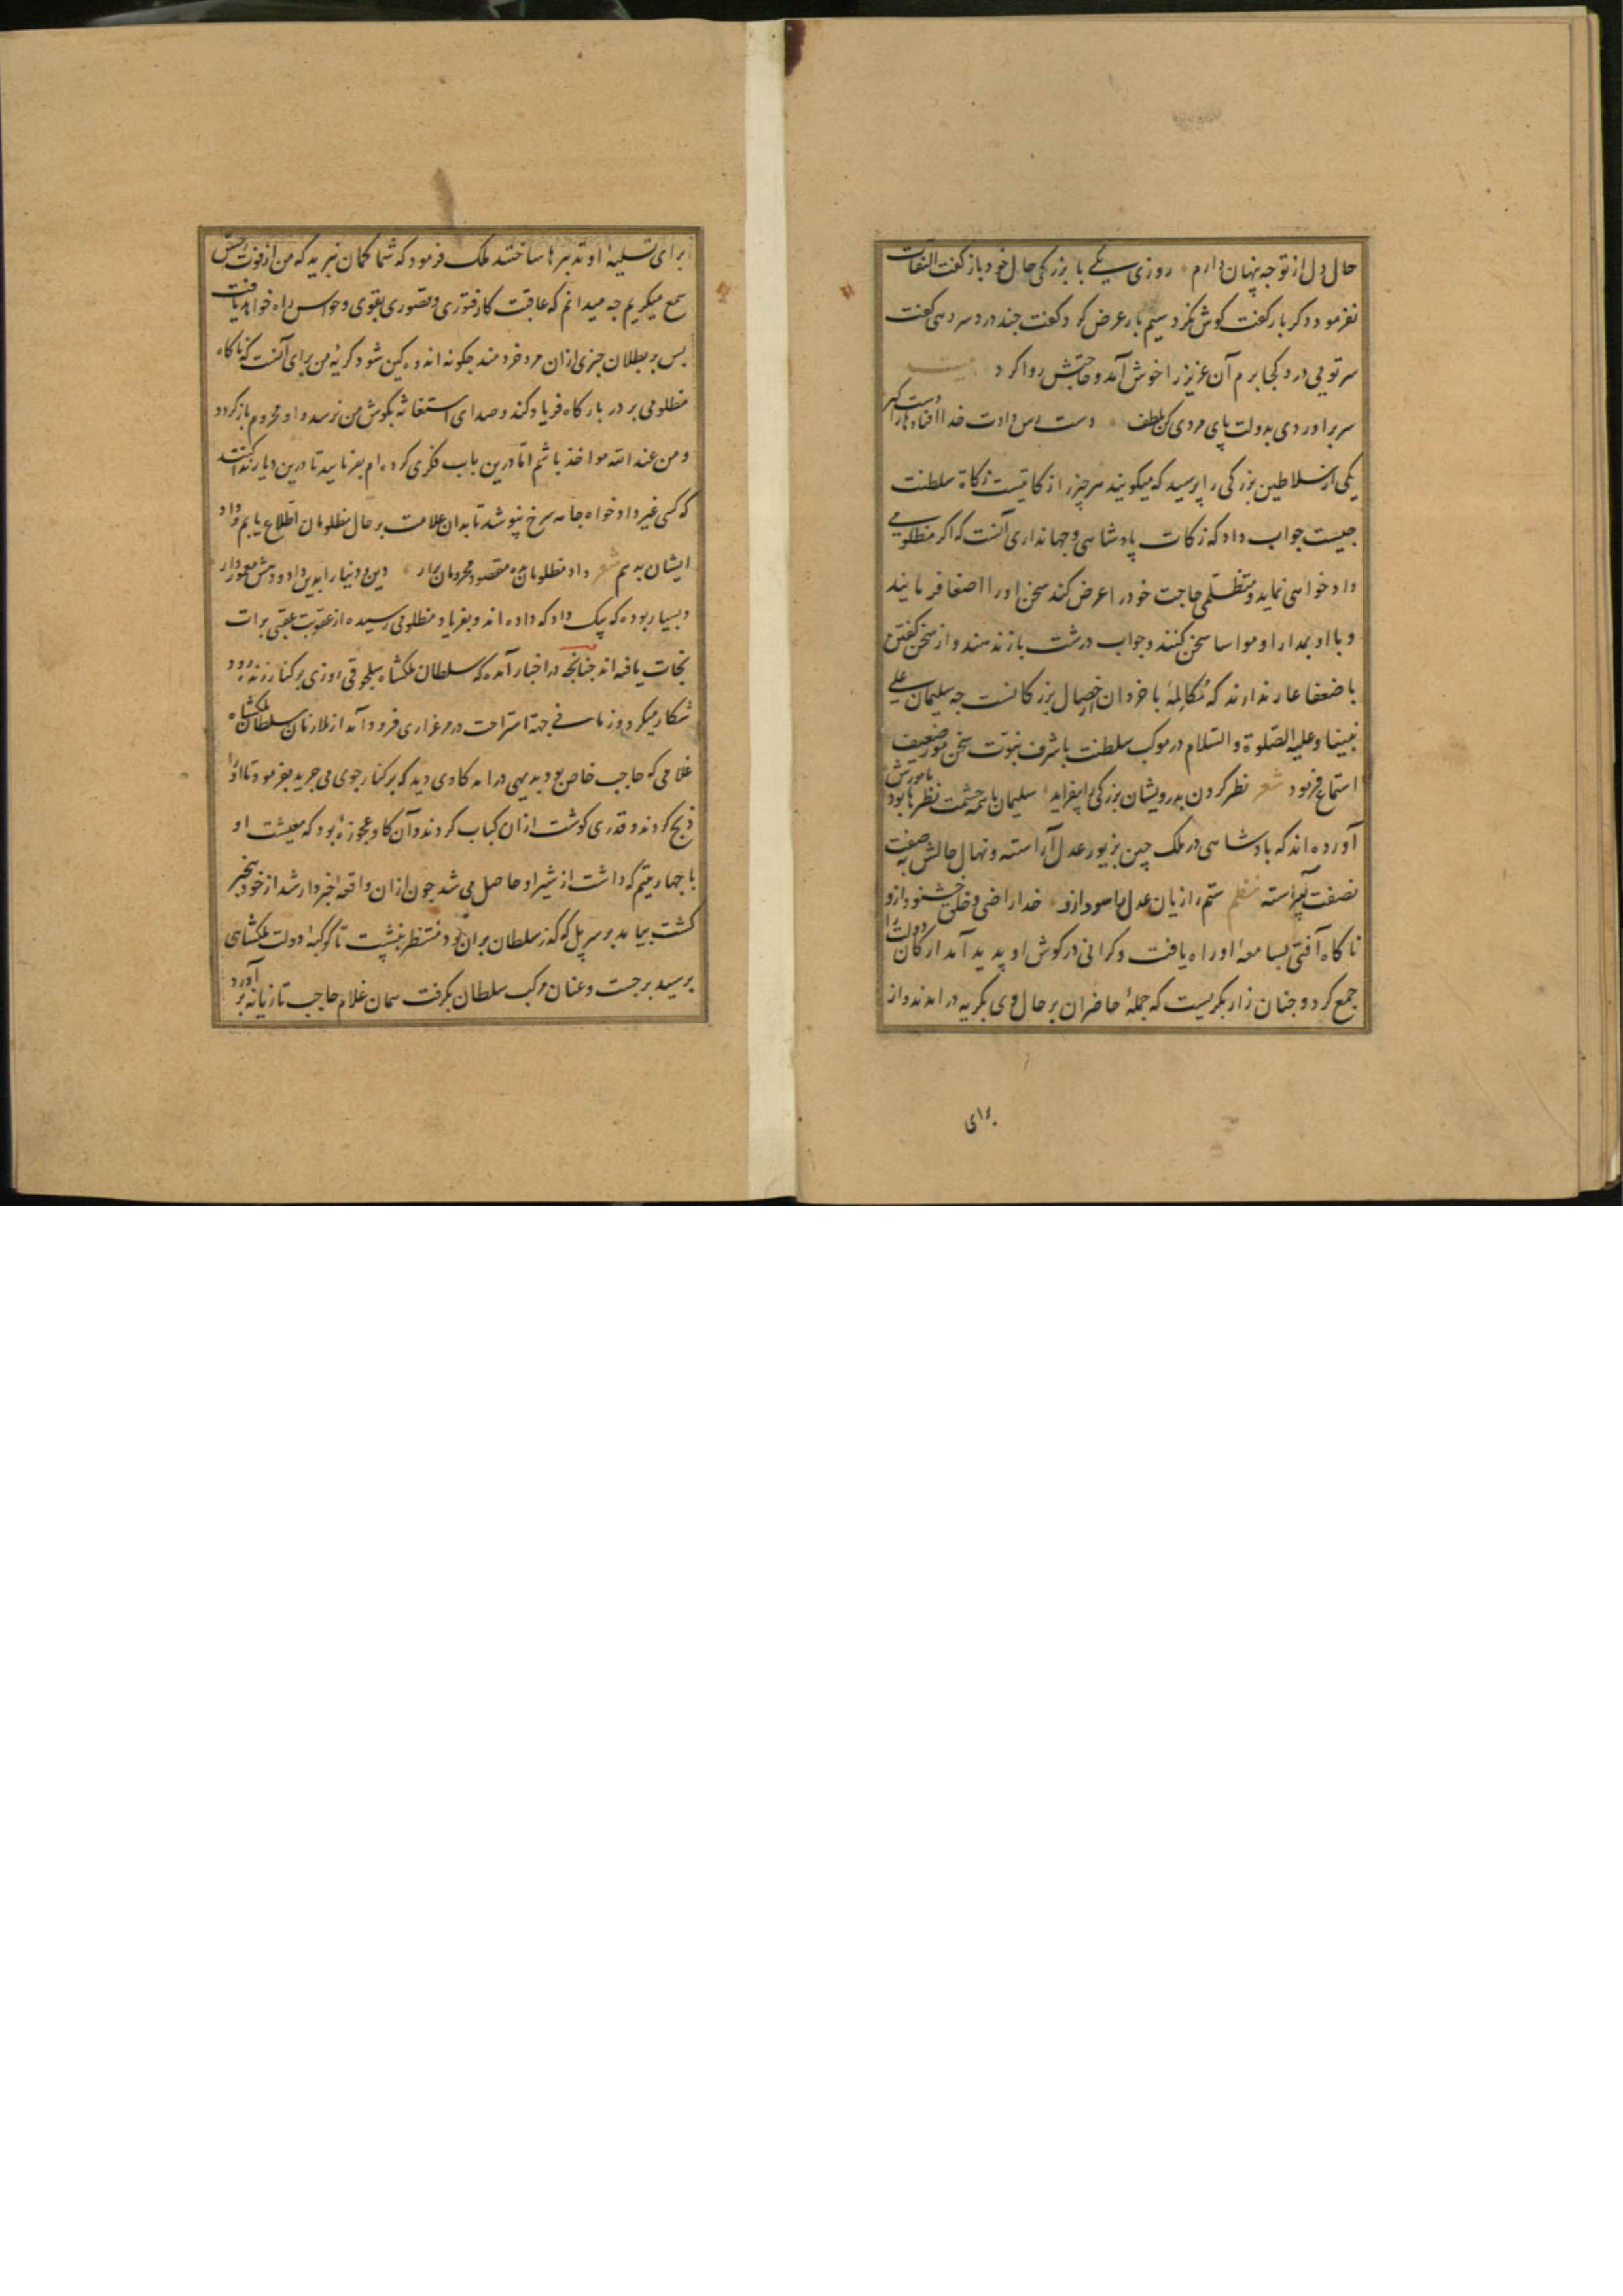 حال دل از تو جه پنهان دارم روزی یکی با بزرکی حال خود باز کفت التفات
نفرمود دکر بار کفت کوش نکرد سیم بار عرض کرد کفت جند دردسر دهی کفت
سر تویی درد کجا برم آن عزیز را خوش آمد و حاجتش روا کرد بیت
سر براوردی بدولت پای مردی کن بلطف دست دادت خدا افتاده را دست کیر
یکی از سلاطین بزرکی را پرسید که میکویند هر چیز را زکاتیست زکاة سلطنت
جیست جواب داد که زکات پادشاهی و جهانداری آنست که اکر مظلومی
داد خواهی نماید و متظلمی حاجت خود را عرض کند سخن او را اصغا فرمایند
و با او بمدارا و مواسا سخن کنند و جواب درشت باز ندهند و از سخن کفتن
با ضعفا عار ندارند که مکالمهٔ با خردان خصال بزرکانست جه سلیمان علی
نبینا و علیه الصلوة والسلام در موکب سلطنت با شرف نبوت سخن مور ضعیف
استماع فرمود شعر نظر کردن بدرویشان بزرکی را بیفزاید سلیمان با همه حشمت نظرها بود با مورش
آورده اند که پادشاهی در ملک چین بزیور عدل آراسته و نهال حالش به صفت
نصفت پیراسته نظم ستم را زیان عدل را سود ازو خدا راضی و خلق خشنود ازو
ناکاه آفتی بسامعهٔ او راه یافت و کرانی در کوش او پدید آمد ارکان دولت را
جمع کرد و جنان زار بکریست که جملهٔ حاضران بر حال وی بکریه در امدند و از
برای
برای تسلیهٔ او تدبیرها ساختند ملک فرمود که شما کمان نبرید که من از فوت حس
سمع میکریم جه میدانم که عاقبت کار فتوری و قصوری بقوی و حواس راه خواهد یافت
بس بر بطلان جیزی ازان مرد خردمند جکونه اندوهکین شود کریهٔ من برای آنست که ناکاه
مظلومی بر در بارکاه فریاد کند و صدای استغاثه بکوش من نرسد و او محروم باز کردد
و من عند الله مواخذ باشم اما درین باب فکری کرده ام بفرمایید تا درین دیار ندا کنند
که کسی غیر داد خواه جامه سرخ نپوشد تا بدان علامت بر حال مظلومان اطلاع یابم و داد
ایشان بدهم شعر داد مظلومان بده مقصود محرومان برار دین و دنیا را بدین داد و دهش معمور دار
و بسیار بوده که بیک داد که داده اند و بفریاد مظلومی رسیده از عقوبت عقبی برات
نجات یافته اند جنانجه در اخبار آمده که سلطان ملکشاه سلجوقی روزی بر کنار زنده رود
شکار میکرد و زمانی جهة استراحت در مرغزاری فرود آمد از ملازمان سلطان ملکشاه
غلامی که حاجب خاص بود بدیهی درامد کاوی دید که بر کنار جوی می جرید بفرمود تا او را
ذبح کردند و قدری کوشت ازان کباب کردند و آن کاو عجوزه بود که معیشت او
با جهار یتیم که داشت از شیر او حاصل می شد جون ازان واقعه خبردار شد از خود بیخبر
کشت بیامد بر سر پل که کذر سلطان بران بود منتظر بنشست تا کوکبهٔ دولت ملکشاهی
برسید برجست و عنان مرکب سلطان بکرفت همان غلام حاجب تازیانه بر آورد